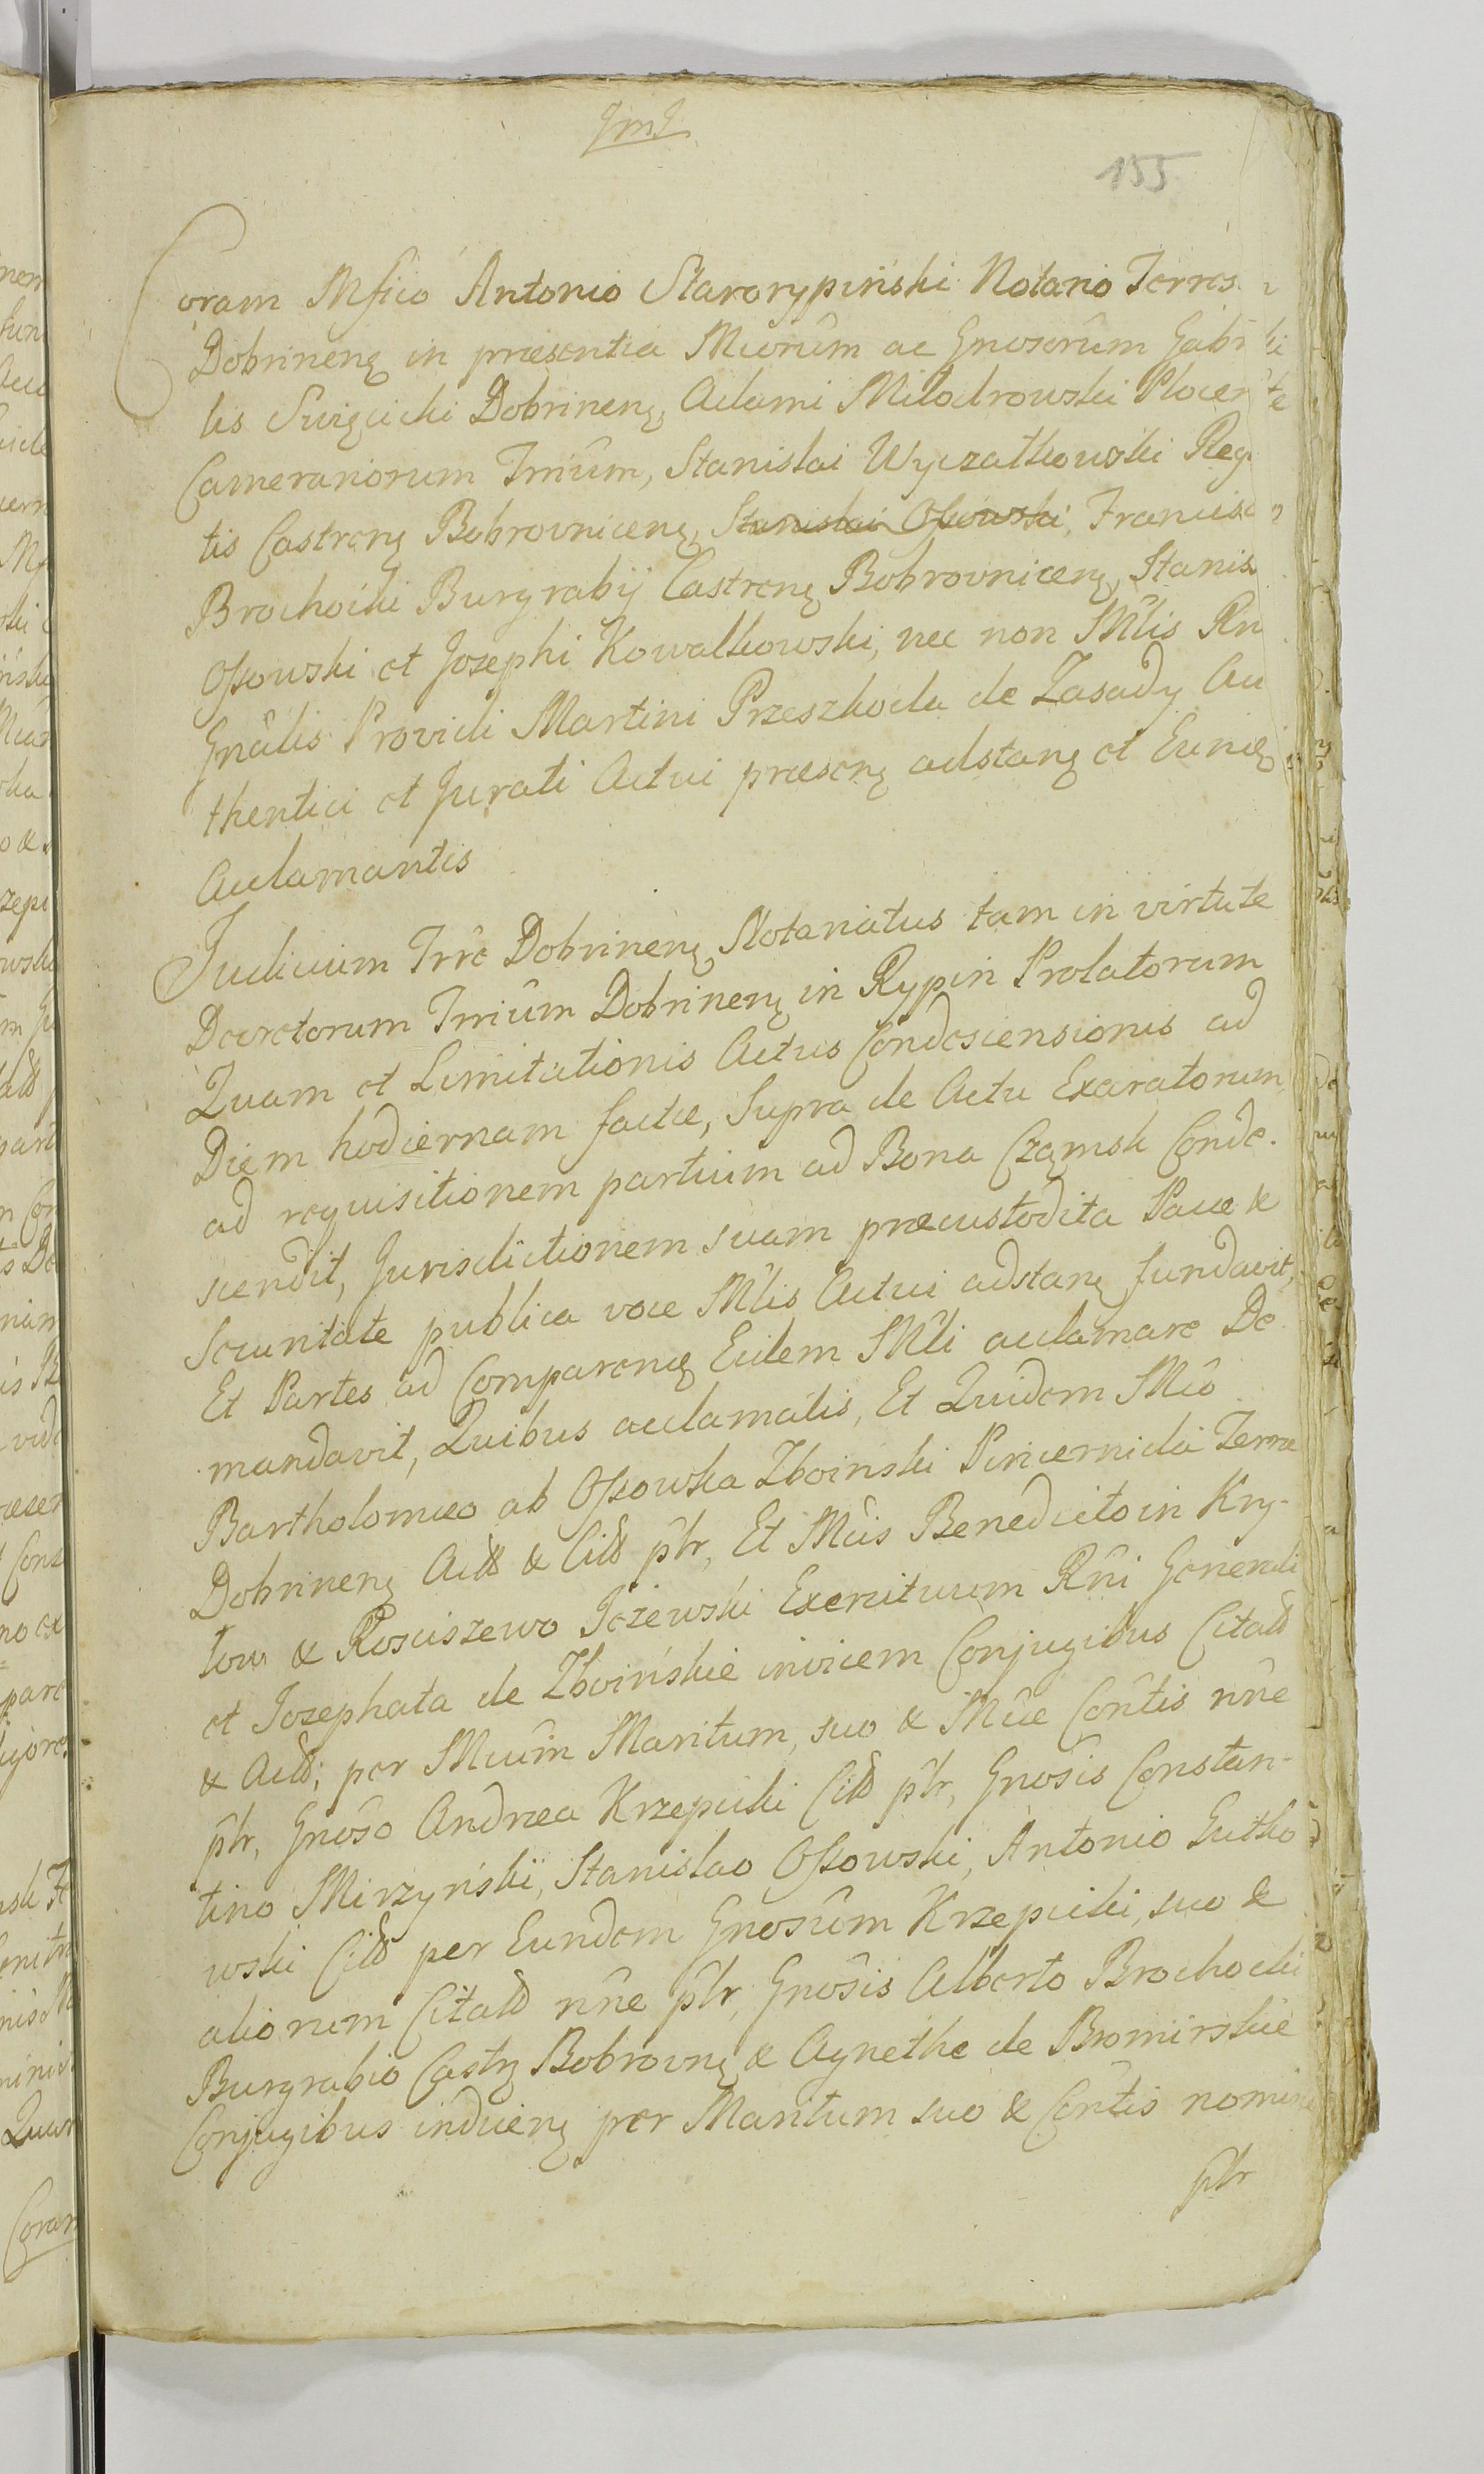 JmJ
155
Coram Mfico Antonio Starorypiński Notario Terres
Dobrinenę in præsentia Mcorûm ac Gnosorûm Gabri
lis Swięcicki Dobrinenę, Adami Miłodrowski Plocen
Camerariorum Trriûm, Stanislai Wyczałkowski Reg
tis Castrenę Bobrovnicenę, Stanislai Ossowski, Francisc
Brochocki Burgrabij Castrenę Bobrovnicenę, Stanis
Ossowski et Josephi Kowalkowski, nec non Mtlis Rn
Gnâlis Providi Martini Przeszkoda de Zasady Au
thentici et Jurati Actui præsenę adstanę et Eunię
Aclamantis
Judicium Trrê Dobrinenę Notariatus tam in virtute
Decretorum Trriûm Dobrinenę in Rypin Prolatorum
Quam et Limitationis Actus Condesciensionis ad
Diem hodiernam factæ, Supra de Actu Exaratorum
ad requisitionem partium ad Bona Czamsk Conde.
scendit, Jurisdictionem suam præcustodita Pace &
Securitate publica voce Mtlis Actui adstanę fundavit,
Et Partes ad Comparenę Eidem Mtli aclamare De
mandavit, Quibus aclamatis, Et Quidem Mcô
Bartholomæo ab Ossowka Zboinski Pincernida Terræ
Dobrinenę Actô & Citô ptr, Et Mcis Benedicto in Kry-
tow & Rosciszewo Jeżewski Exercituum Rni Generali
et Josephata de Zboińskie invicem Conjugibus Citatô
& Actô; per Mcûm Maritum, suo & Mcæ Contis nne
ptr, Gnôso Andrea Krzepicki Citô ptr, Gnosîs Constan-
tino Mirzyński, Stanislao Ossowski, Antonio Gutko
wski Citô per Eundem Gnosûm Krzepicki, suo &
aliorum Citatô nne ptr, Gnosîs Alberto Brochocki
Burgrabio Castrę Bobrovnę & Agnethe de Bromirskie
Conjugibus indvicenę per Maritum suo & Contis nomine
ptr